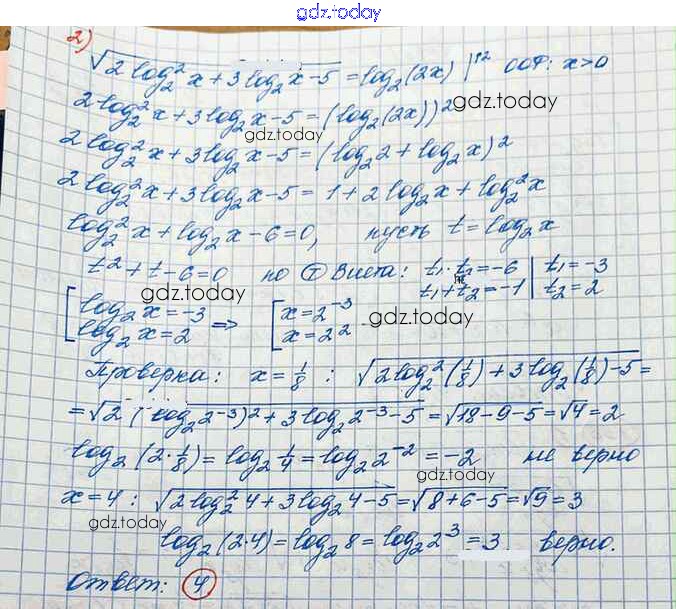 gdz.today
2) √(2 log₂² x + 3 log₂ x - 5) = log₂ (2x) |↑2 ООФ: x > 0
gdz.today
2 log₂² x + 3 log₂ x - 5 = (log₂ (2x))²
gdz.today
2 log₂² x + 3 log₂ x - 5 = (log₂ 2 + log₂ x)²
2 log₂² x + 3 log₂ x - 5 = 1 + 2 log₂ x + log₂² x
log₂² x + log₂ x - 6 = 0, пусть t = log₂ x
gdz.today
t² + t - 6 = 0 по Т Виета: t₁ · t₂ = -6 | t₁ = -3
t₁ + t₂ = -1 | t₂ = 2
gdz.today
[ log₂ x = -3 => [ x = 2⁻³
log₂ x = 2 x = 2²
gdz.today
Проверка: x = 1/8 : √(2 log₂² (1/8) + 3 log₂ (1/8) - 5) =
= √(2 (log₂ 2⁻³)² + 3 log₂ 2⁻³ - 5) = √(18 - 9 - 5) = √4 = 2
log₂ (2 · 1/8) = log₂ 1/4 = log₂ 2⁻² = -2 не верно
gdz.today
x = 4 : √(2 log₂² 4 + 3 log₂ 4 - 5) = √(8 + 6 - 5) = √9 = 3
gdz.today
log₂ (2·4) = log₂ 8 = log₂ 2³ = 3 верно.
Ответ: 4